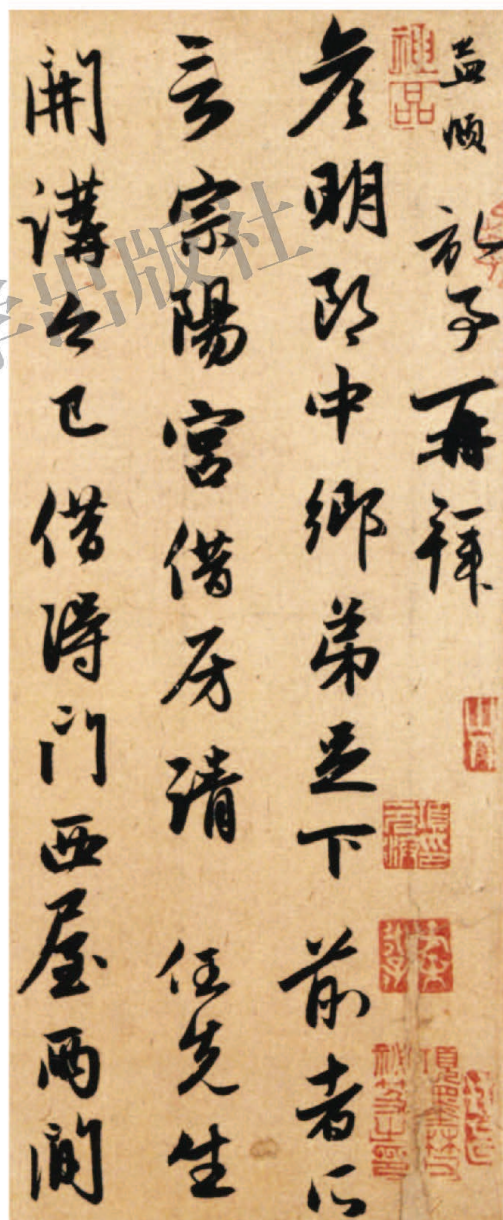 孟頫 孤子再拜
彦明郎中鄉弟足下 前者所
言宗陽宮借房請 任先生
開講今已借得門西屋兩間
神品
学出版社